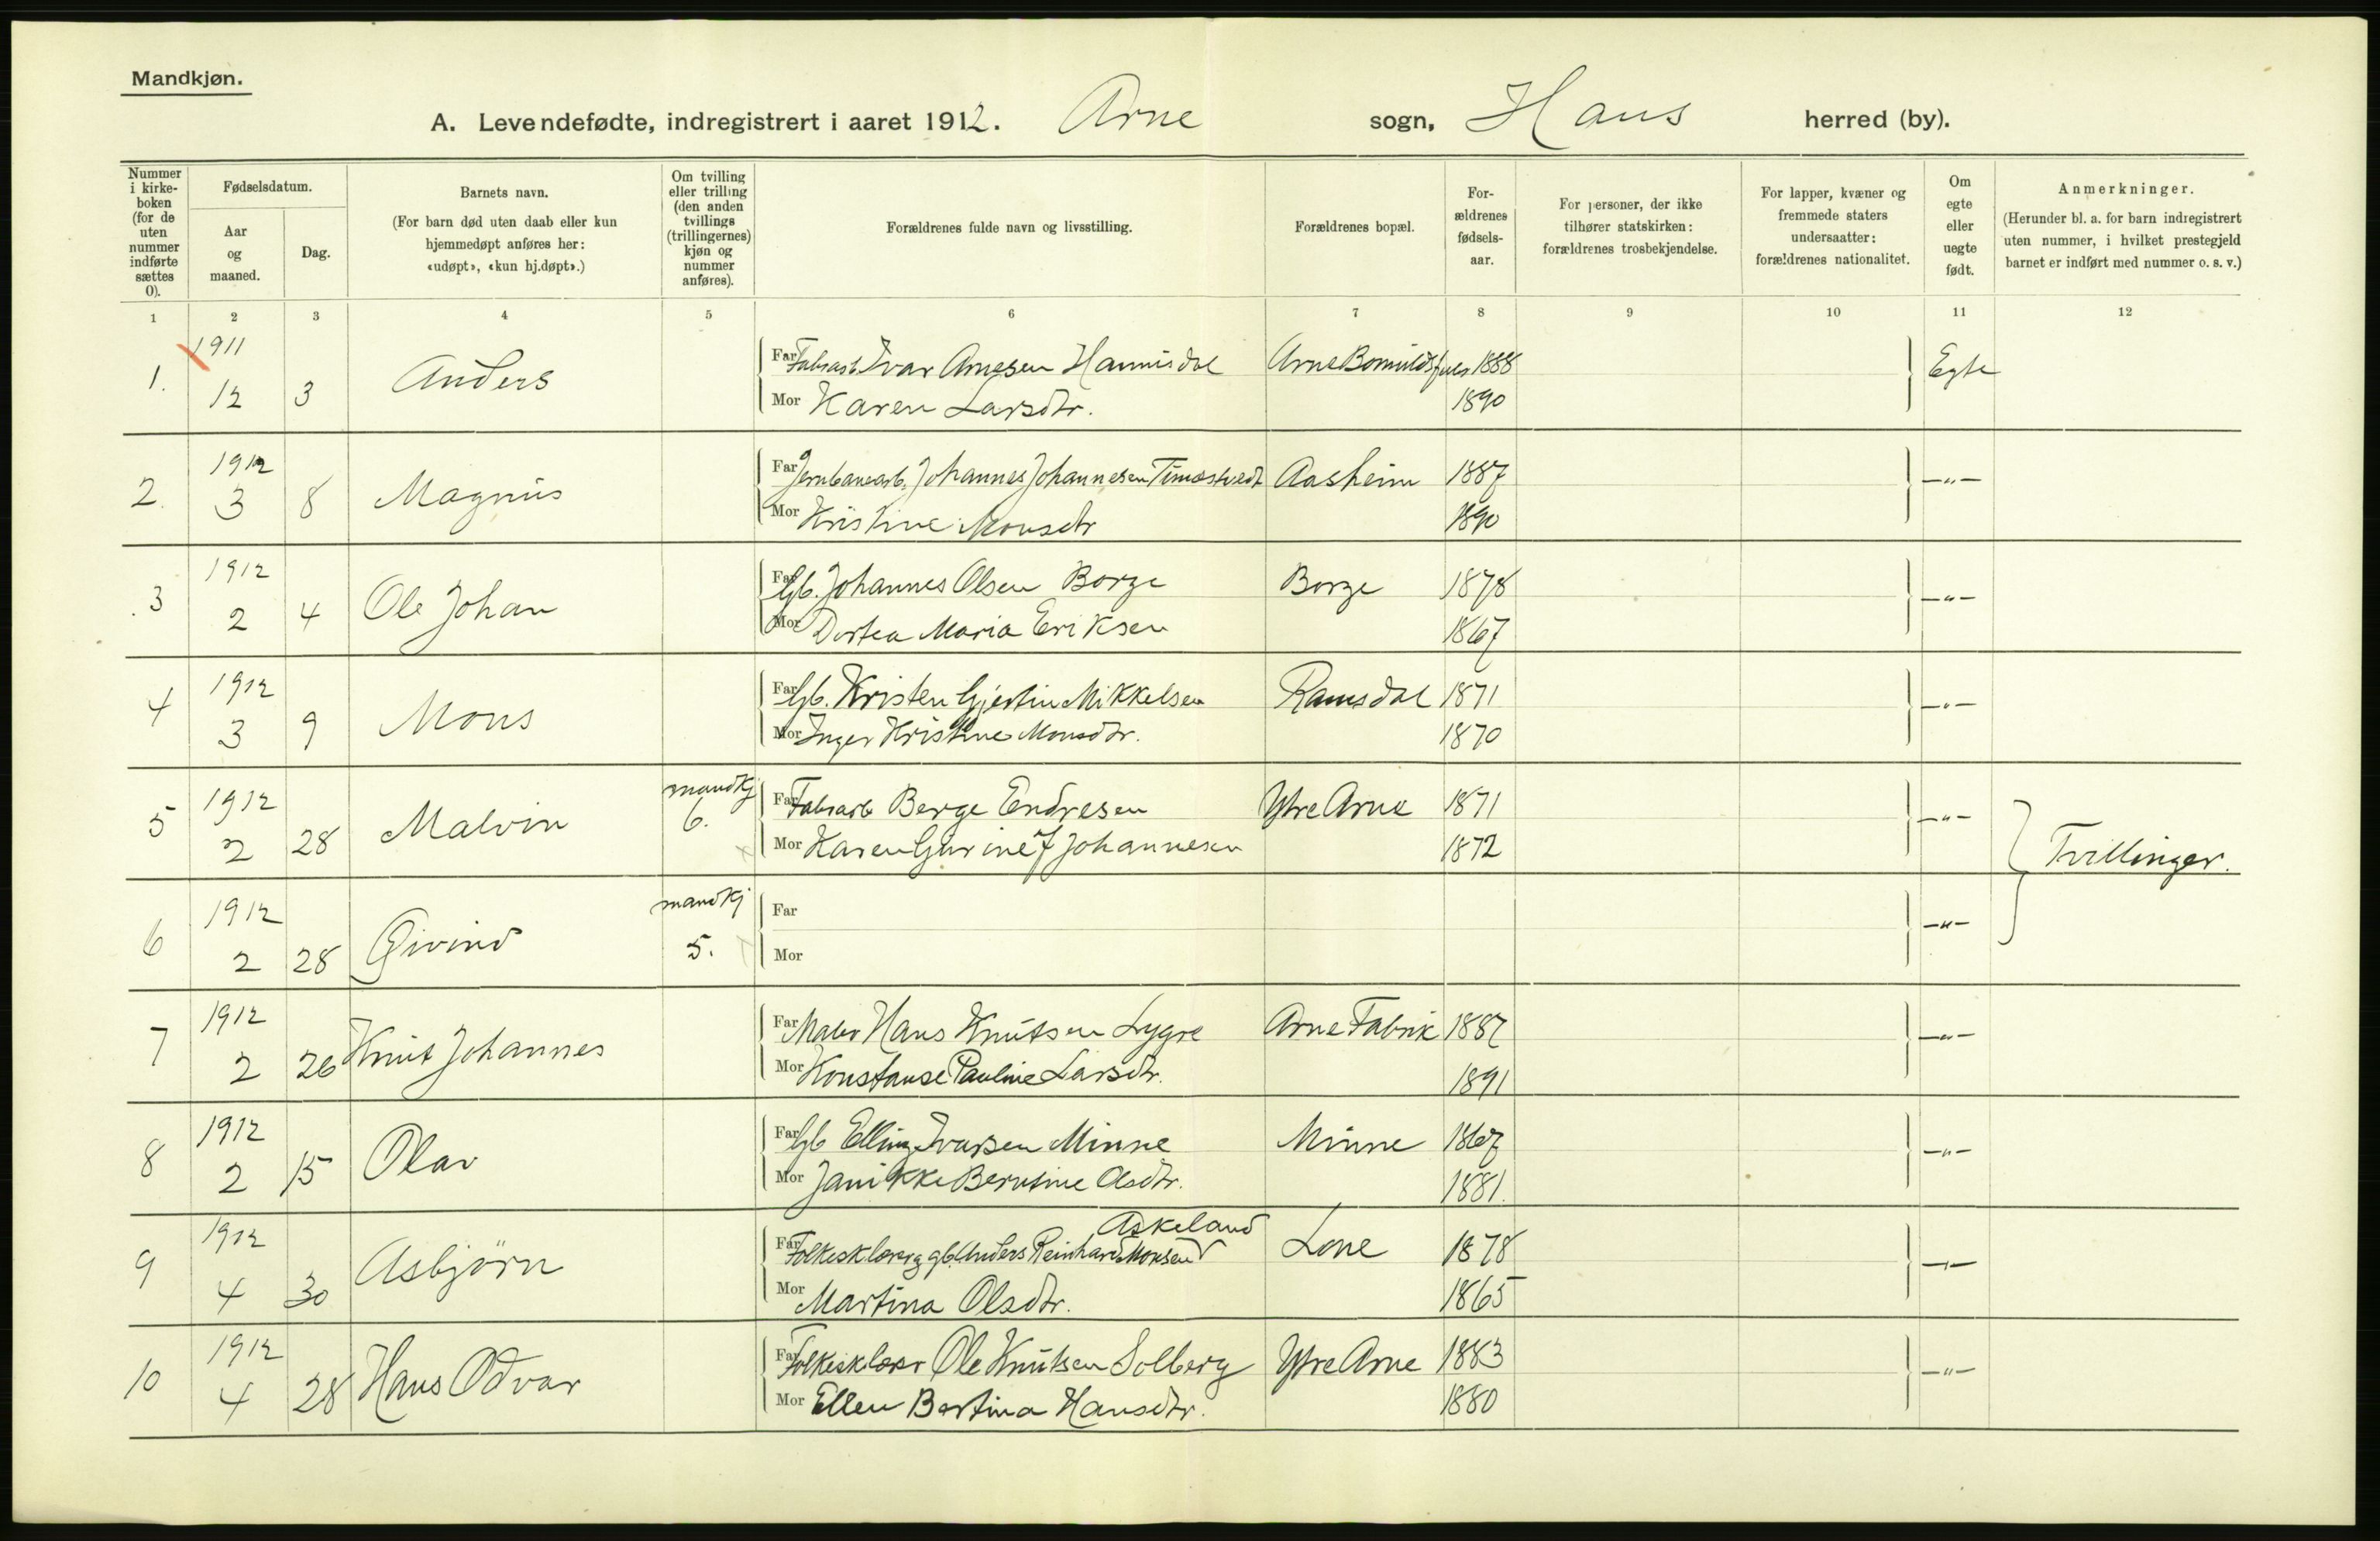 Mandkjøn.
A. Levendefødte, indregistrert i aaret 1912. Arne sogn, Haus herred (by).
Nummer i kirke-boken (for de uten nummer indførte sættes 0).
Fødselsdatum.
Aar og maaned.
Dag.
Barnets navn.
(For barn død uten daab eller kun hjemmedøpt anføres her: «udøpt», «kun hj.døpt».)
Om tvilling eller trilling (den anden tvillings (trillingernes) kjøn og nummer anføres).
Forældrenes fulde navn og livsstilling.
Forældrenes bopæl.
For-ældrenes fødsels-aar.
For personer, der ikke tilhører statskirken: forældrenes trosbekjendelse.
For lapper, kvæner og fremmede staters undersaatter: forældrenes nationalitet.
Om egte eller uegte født.
Anmerkninger.
(Herunder bl. a. for barn indregistrert uten nummer, i hvilket prestegjeld barnet er indført med nummer o. s. v.)
1 2 3 4 5 6 7 8 9 10 11 12
1. 1911 12 3 Anders Far Fabrarb Ivar Arnesen Hannisdal Arne Bomulds 1888 Egte
Mor Karen Larsdtr. 1890
2. 1912 3 8 Magnus Far Jernbanearb. Johannes Johannesen Aasheim 1887 —"—
Mor Kristine Monsdtr 1890
3 1912 2 4 Ole Johan Far Gb. Johannes Olsen Borge Borge 1878 —"—
Mor Dortea Maria Eriksen 1867
4 1912 3 9 Mons Far Gb. Kristen Gjertin Mikkelsen Ramsdal 1871 —"—
Mor Inger Kristine Monsdtr. 1870
5 1912 2 28 Malvin mandkj 6. Far Fabrarb Berge Endresen Ytre Arne 1871 —"—
Mor Karen Gurine Johannesen 1872
Tvillinger.
6 1912 2 28 Øivind mandkj 5. Far —"—
Mor
7 1912 2 26 Knut Johannes Far Maler Hans Knutsen Lygre Arne Fabrik 1887 —"—
Mor Konstanse Pauline Larsdtr. 1891
8 1912 2 15 Olav Far Gb Elling Ivarsen Minne Minne 1867 —"—
Mor Janikke Berntine Olsdtr. 1881.
Askeland
9 1912 4 30 Asbjörn Far Folkesklærer g gb. Anders Reinhard Monsen Lone 1878 —"—
Mor Martina Olsdtr. 1865
10 1912 4 28 Hans Odvar Far Folkesklærer Ole Knutsen Solberg Ytre Arne 1883 —"—
Mor Ellen Bertina Hansdtr. 1880